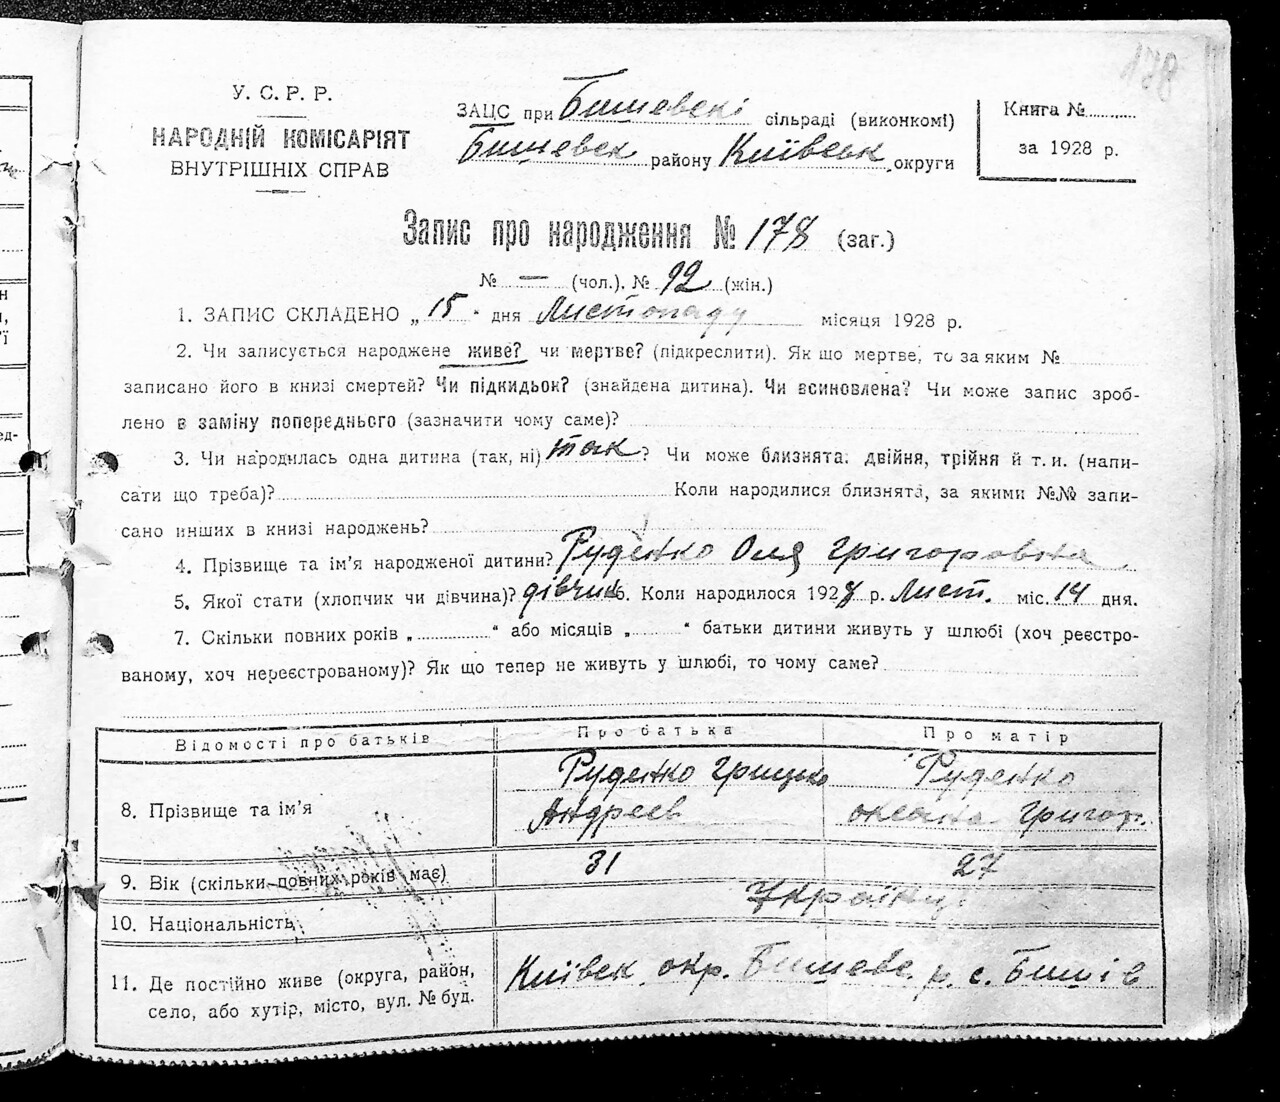 178
У. С. Р. Р.
НАРОДНІЙ КОМІСАРІЯТ
ВНУТРІШНІХ СПРАВ
ЗАЦС при Бишевскі сільраді (виконкомі)
Бишевск району Київськ округи
Книга №
за 1928 р.
Запис про народження № 178 (заг.)
№ — (чол.). № 92 (жін.)
1. ЗАПИС СКЛАДЕНО „15" дня Листопаду місяця 1928 р.
2. Чи записується народжене живе? чи мертве? (підкреслити). Як що мертве, то за яким №
записано його в книзі смертей? Чи підкидьок? (знайдена дитина). Чи всиновлена? Чи може запис зроб-
лено в заміну попереднього (зазначити чому саме)?
3. Чи народилась одна дитина (так, ні) так? Чи може близнята: двійня, трійня й т. и. (напи-
сати що треба)? Коли народилися близнята, за якими №№ запи-
сано инших в книзі народжень?
4. Прізвище та ім'я народженої дитини? Руденко Оля Григоровна
5. Якої статі (хлопчик чи дівчина)? дівчин 6. Коли народилося 1928 р. Лист. міс. 14 дня.
7. Скільки повних років „ " або місяців „ " батьки дитини живуть у шлюбі (хоч реєстро-
ваному, хоч нереєстрованому)? Як що тепер не живуть у шлюбі, то чому саме?
Відомості про батьків Про батька Про матір
8. Прізвище та ім'я Руденко Грицко Андреев Руденко оксана Григор.
9. Вік (скільки повних років має) 31 27
10. Національність Українці
11. Де постійно живе (округа, район,
село, або хутір, місто, вул. № буд. Київск окр. Бишевс. р. с. Бишів